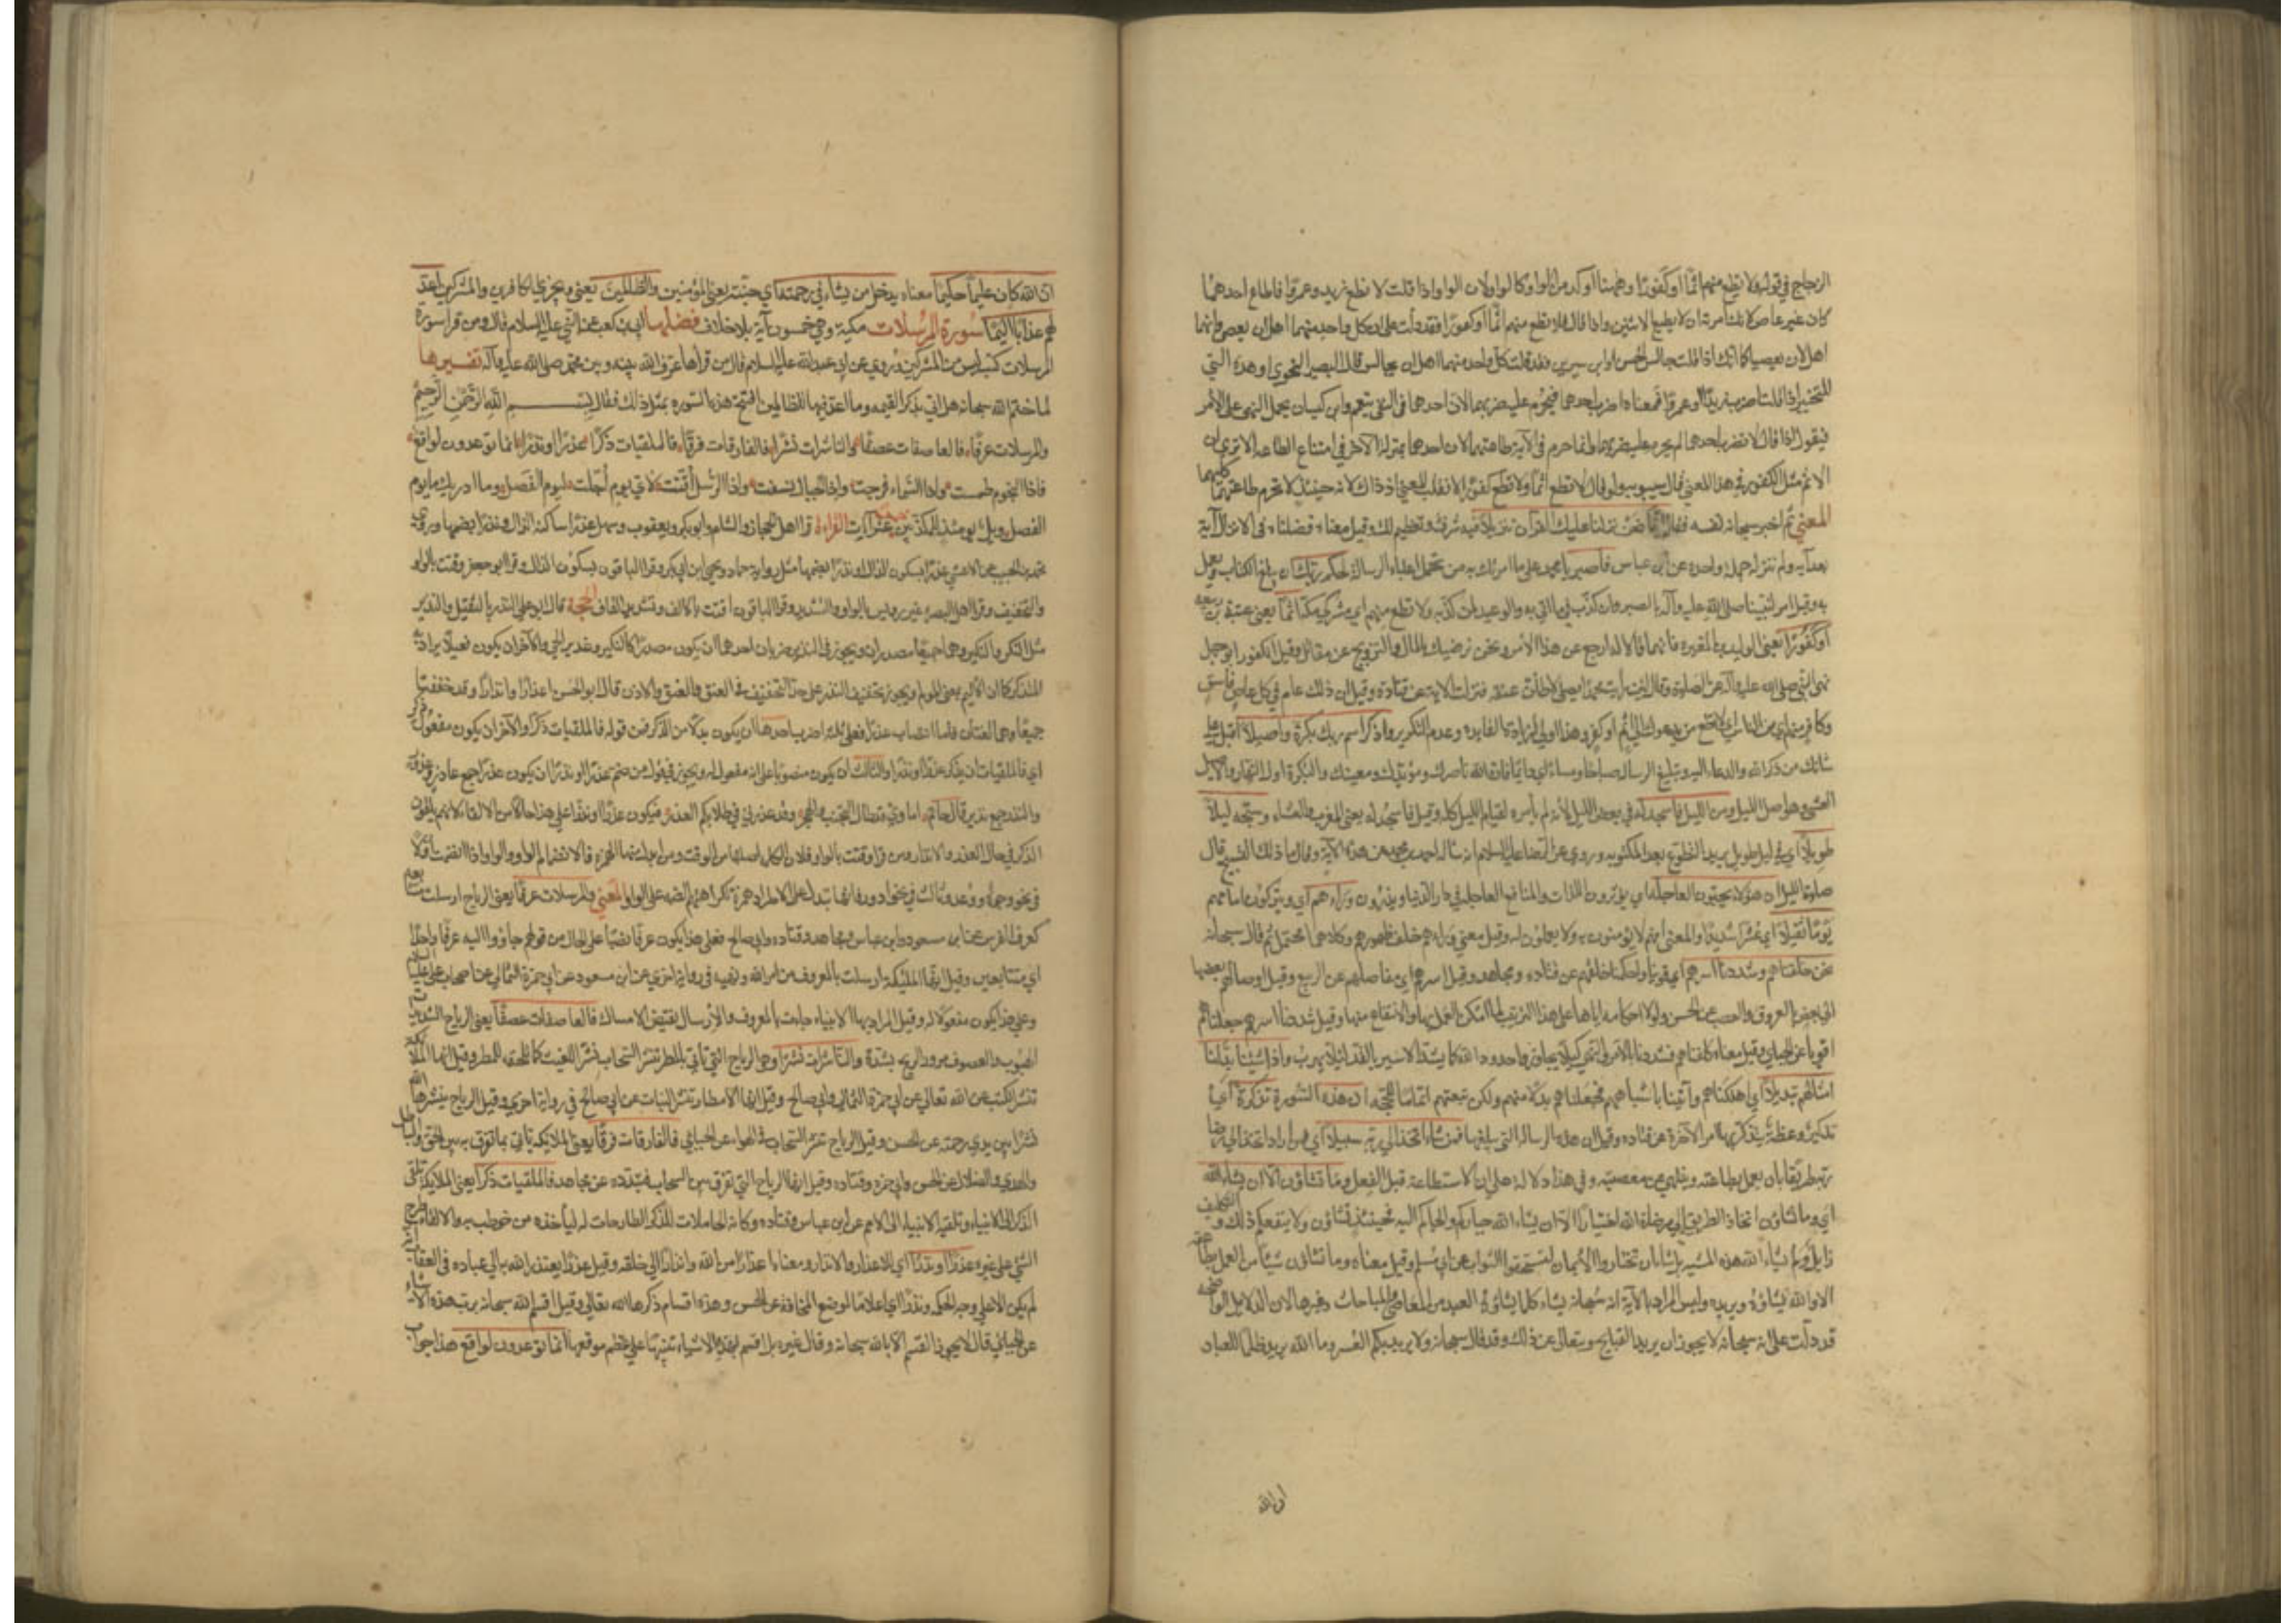 الزجاج في قوله ولا تطع منهم اثما او كفورا او ههنا اوكد من الواو كا لواو لان الواو اذا قلت لا تطع زيد وعمروا فاطاع احدهما
كان غير عاص لانك امرته ان لا يطيع الاثنين واذا قال فلا تطع منهم اثما او كفورا فقد دلت على ان كل واحد منهما اهل ان يعصي وانهما
اهل ان يعصيا كما انك اذا قلت جالس الحسن او ابن سيرين فقد قلت كل واحد منهما اهل ان يجالس قال البصير النحوي او هذه التي
للتخيير اذا قلت اضرب زيدا او عمروا فمعناه اضرب احدهما فيحرم عليه ضربهما لان احدهما في النهي يعم وابن كيسان يحمل النهي على الامر
فيقول اذا قال لا تضرب احدهما لم يحرم عليه ضربهما وانما حرم في الآية طاعتهما لان احدهما بمنزلة الاخر في امتناع الطاعة الا ترى ان
الاثم مثل الكفور في هذا المعنى قال سيبويه ولو قال لا تطع اثما ولا تطع كفورا لانقلب المعنى اذ ذاك لانه حينئذ لا تحرم طاعتهما كليهما
المعنى ثم اخبر سبحانه نفسه فقال انا نحن نزلنا عليك القرآن تنزيلا فيه شرف وتعظيم لك وقيل معناه فصلناه في الانزال آية
بعد آية ولم ننزله جملة واحدة عن ابن عباس فاصبر يا محمد على ما امرتك به من تحمل اعباء الرسالة لحكم ربك ان يبلغ الكتاب ويعمل
به وقيل امر لنبينا صلى الله عليه وآله بالصبر وان كذب فيما اتى به والوعيد لمن كذبه ولا تطع منهم اي مشركي مكة اثما يعني عتبة بن ربيعة
او كفورا يعني الوليد بن المغيرة فانهما قالا له ارجع عن هذا الامر ونحن نرضيك بالمال والتزويج عن مقاتل وقيل الكفور ابو جهل
نهى النبي صلى الله عليه وآله عن الصلوة وقال لئن رايت محمدا يصلي لاطأن عنقه فنزلت الاية عن قتادة وقيل ان ذلك عام في كل عاص فاسق
وكافر منهم اي من الناس اي لا تطع من يدعوك الى اثم او كفر وهذا اولى لزيادة الفايدة وعدم التكرير واذكر اسم ربك بكرة واصيلا اقبل على
شانك من ذكر الله والدعاء اليه وتبليغ الرسالة صباحا ومساء اي دايما فان الله ناصرك ومؤيدك ومعينك والبكرة اول النهار والاصيل
العشي وهو اصل الليل ومن الليل فاسجد له في بعض الليل لانه لم يأمره لقيام الليل كله وقيل فاسجد له يعني المغرب والعشاء وسبحه ليلا
طويلا اي في ليل طويل يريد التطوع بعد المكتوبة وروي عن الرضا عليه السلام انه ساله احمد بن محمد عن هذه الآية وقال ما ذلك التسبيح قال
صلوة الليل ان هؤلاء يحبون العاجلة اي يؤثرون اللذات والمنافع العاجلة في دار الدنيا ويذرون وراءهم اي ويتركون امامهم
يوما ثقيلا اي عسيرا شديدا والمعنى انهم لا يؤمنون به ولا يعملون له وقيل معنى وراءهم خلف ظهورهم وكلاهما محتمل ثم قال سبحانه
نحن خلقناهم وشددنا اسرهم اي قوينا واحكمنا خلقهم عن قتادة ومجاهد وقيل اسرهم اي مفاصلهم عن الربيع وقيل اوصالهم بعضها
الى بعض بالعروق والعصب عن الحسن ولولا احكامه اياها على هذا الترتيب لما امكن العمل بها والانتفاع منها وقيل شددنا اسرهم جعلناهم
اقوياء عن الجبائي وقيل معناه كلفناهم فشددناهم بالامر والنهي كيلا يجاوزوا حدود الله كما يشد الاسير بالقد لئلا يهرب واذا شئنا بدلنا
امثالهم تبديلا اي اهلكناهم واتينا باشباههم فجعلناهم بدلا منهم ولكن نبقيهم اتماما للحجة ان هذه السورة تذكرة اي
تذكير وعظة يتذكر بها امر الآخرة عن قتادة وقيل ان هذه الرسالة التي يبلغها فمن شاء اتخذ الى ربه سبيلا اي فمن اراد اتخذ الى رضا
ربه طريقا بان يعمل بطاعته وينتهي عن معصيته وفي هذا دلالة على ان الاستطاعة قبل الفعل وما تشاؤن الا ان يشاء الله
اي وما تشاؤن اتخاذ الطريق الى مرضاة الله اختيارا الا ان يشاء الله جباركم والجاكم اليه فحينئذ تشاؤن ولا ينفعكم ذلك والتكليف
زايل ولم يشاء الله هذه المشية بل شاء ان تختاروا الايمان لتستحقوا الثواب عن ابي مسلم وقيل معناه وما تشاؤن شيئا من العمل بطاعته
الا والله يشاؤه ويريده وليس المراد بالآية انه سبحانه يشاء كلما يشاؤه العبد من المعاصي والمباحات وغيرها لان الدلايل الواضحة
قد دلت على انه سبحانه لا يجوز ان يريد القبايح ويتعالى عن ذلك وقد قال سبحانه ولا يريد بكم العسر وما الله يريد ظلما للعباد
ان الله
ان الله كان عليما حكيما معناه يدخل من يشاء في رحمته اي جنته يعني المؤمنين والظالمين يعني ويجزي الكافرين والمشركين اعد
لهم عذابا اليما سورة المرسلات مكية وهي خمسون آية بلا خلاف فضلها ابي بن كعب عن النبي عليه السلام قال ومن قرا سورة
المرسلات كتب ليس من المشركين وروي عن ابي عبد الله عليه السلام قال من قرأها عرف الله بينه وبين محمد صلى الله عليه وآله تفسيرها
لما ختم الله سبحانه هل اتى بذكر القيمة وما اعد فيها للظالمين افتتح هذه السورة بمثل ذلك فقال بسم الله الرحمن الرحيم
والمرسلات عرفا فالعاصفات عصفا والناشرات نشرا فالفارقات فرقا فالملقيات ذكرا عذرا او نذرا انما توعدون لواقع
فاذا النجوم طمست واذا السماء فرجت واذا الجبال نسفت واذا الرسل اقتت لاي يوم اجلت ليوم الفصل وما ادريك ما يوم
الفصل ويل يومئذ للمكذبين عشر آيات القراءة قرا اهل الحجاز والشام وابو بكر ويعقوب وسهل عذرا ساكنة الذال ونذرا بضمها وروى
محمد بن الحبيب عن الاعشى عذرا بسكون الذال ونذرا بضمها مثل رواية حماد ويحيى ابن ابي بكر وقرا الباقون بسكون الذال وقرا ابو جعفر وقتت بالواو
والتخفيف وقرا اهل البصرة غير رويس بالواو والتشديد وقرا الباقون اقتت بالالف وتشديد القاف الحجة قال ابو علي النذر بالتثقيل والنذير
مثل النكر والنكير وهما جميعا مصدران ويجوز في النذير ضربان احدهما ان يكون مصدرا كالنكير وعذير الحي والآخر ان يكون فعيلا يراد به
المنذر كما ان الاليم بمعنى المولم ويجوز تخفيف النذر على حد التخفيف في العنق والعنق والاذن قال ابو الحسن اعذارا وانذارا وقد خففتا
جميعا وهما لغتان فاما انتصاب عذرا فعلى ثلثة اضرب احدها ان يكون بدلا من الذكر في قوله فالملقيات ذكرا والآخر ان يكون مفعول ذكر
اي فالملقيات ان يذكر عذرا او نذرا والثالث ان يكون منصوبا على انه مفعول له ويجوز في قول من ضم عذرا او نذرا ان يكون عذر جمع عاذر وعذير
والنذر جمع نذير قال حاتم اماوي قد طال التجنب والهجر وقد عذرتني في طلابكم العذر فيكون عذرا او نذرا على هذا حالا من الالقاء كانهم يلقون
الذكر في حال العذر والانذار ومن قرا وقتت بالواو فلان الكل اصلها من الوقت ومن ابدل منها الهمزة فلانضمام الواو والواو اذا انضمت اولا
في نحو وجوه ووعد وثالثة في نحو ادور فانها تبدل على الاطراد همزة لكراهتهم الضمة على الواو المعنى والمرسلات عرفا يعني الرياح ارسلت متتابعة
كعرف الفرس عن ابن مسعود وابن عباس ومجاهد وقتادة وابي صالح فعلى هذا يكون عرفا نصبا على الحال من قولهم جاؤوا اليه عرفا واحدا
اي متتابعين وقيل انها المليكة ارسلت بالمعروف من امر الله ونهيه في رواية اخرى عن ابن مسعود عن ابي حمزة الثمالي عن اصحاب علي عليه السلام
وعلى هذا يكون مفعولا له وقيل المراد بها الانبياء جاءت بالمعروف والارسال نقيض الامساك فالعاصفات عصفا يعني الرياح الشديدة
الهبوب والعصوف مرور الريح بشدة والناشرات نشرا وهي الرياح التي تاتي بالمطر تنشر السحاب نشرا للغيث كما تلقحه للمطر وقيل انها الملائكة
تنشر الكتب عن الله تعالى عن ابي حمزة الثمالي وابي صالح وقيل انها الامطار تنشر النبات عن ابي صالح في رواية اخرى وقيل الرياح ينشرها الله
نشرا بين يدي رحمته عن الحسن وقيل الرياح تنشر السحاب في الهواء عن الجبائي فالفارقات فرقا يعني الملايكة تاتي بما تفرق به بين الحق والباطل
والهدى والضلال عن الحسن وابي حمزة وقتادة وقيل انها الرياح التي تفرق بين السحاب فتبدده عن مجاهد فالملقيات ذكرا يعني الملايكة تلقى
الذكر الى الانبياء وتلقيه الانبياء الى الامم عن ابن عباس وقتادة وكانه الحاملات للذكر الطارحات له ليأخذه من خوطب به والالقاء طرح
الشيء على غيره عذرا او نذرا اي للاعذار والانذار ومعناه اعذارا من الله وانذارا الى خلقه وقيل عذرا يعتذر الله به الى عباده في العقاب انه
لم يكن الا على وجه الحكمة ونذرا اي اعلاما لموضع المخافة عن الحسن وهذه اقسام ذكرها الله تعالى وقيل اقسم الله سبحانه برب هذه الاشياء
عن الجبائي قال لا يجوز القسم الا بالله سبحانه وقال غيره بل اقسم بهذه الاشياء تنبيها على عظم موقعها انما توعدون لواقع هذا جواب